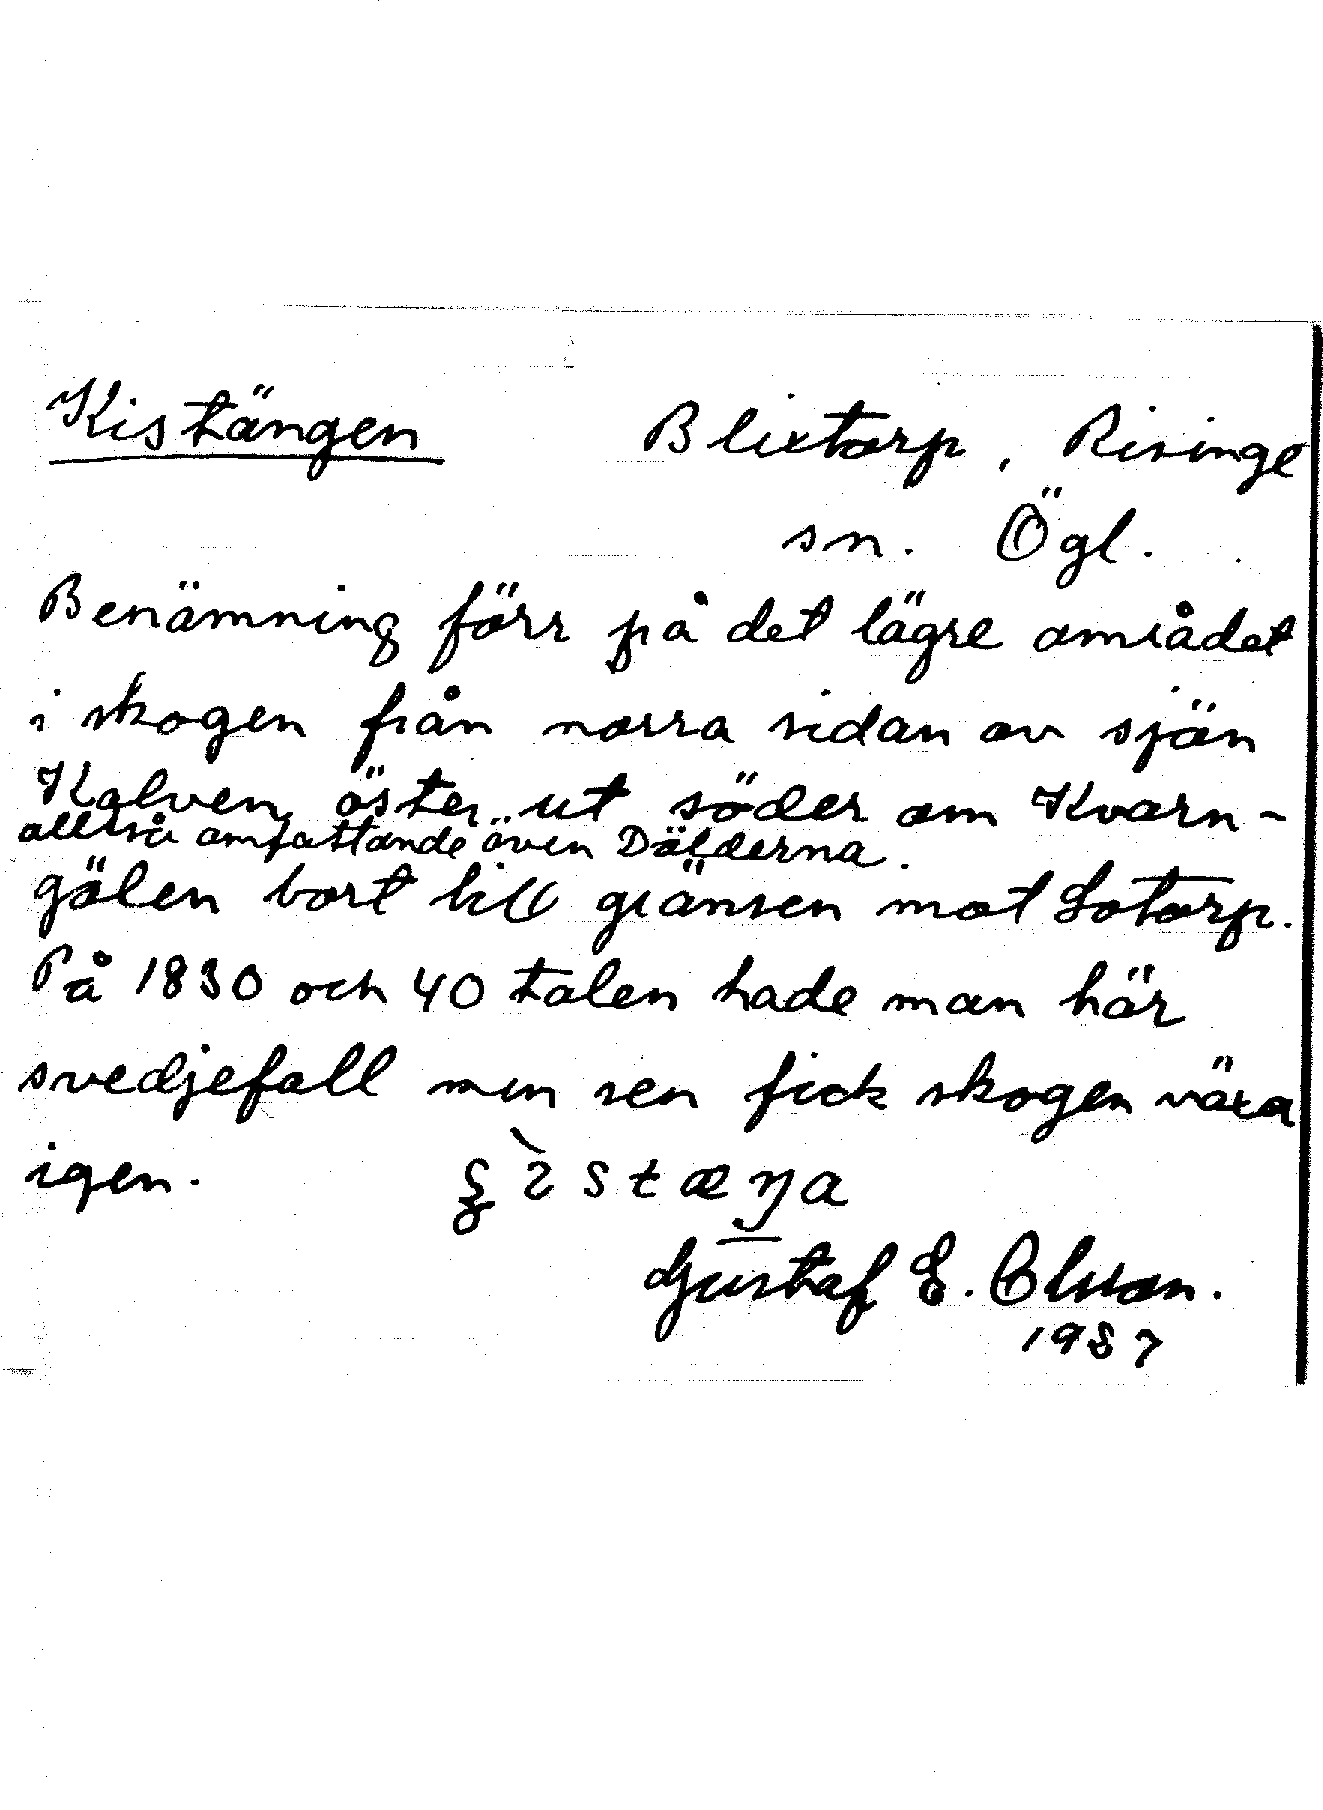 Kistängen Blixtorp, Risinge
sn. Ögl.
Benämning förr på det lägre området
i skogen från norra sidan av sjön
Kalven öster ut söder om Kvarn-
alltså omfattande även Dälderna.
gölen bort till gränsen mot Lotorp.
På 1830 och 40 talen hade man här
svedjefall men sen fick skogen växa
igen.
Gustaf E. Olsson.
1987